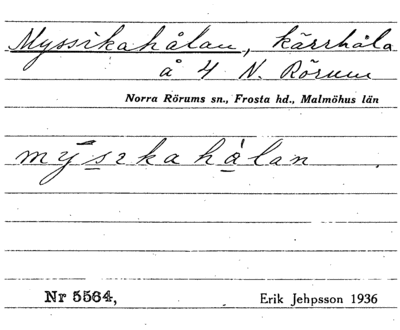 Myssikahålan, kärrhåla
å 4 N. Rörum
Norra Rörums sn., Frosta hd., Malmöhus län
mȳsıkahålan .
Nr 5564,
Erik Jehpsson 1936